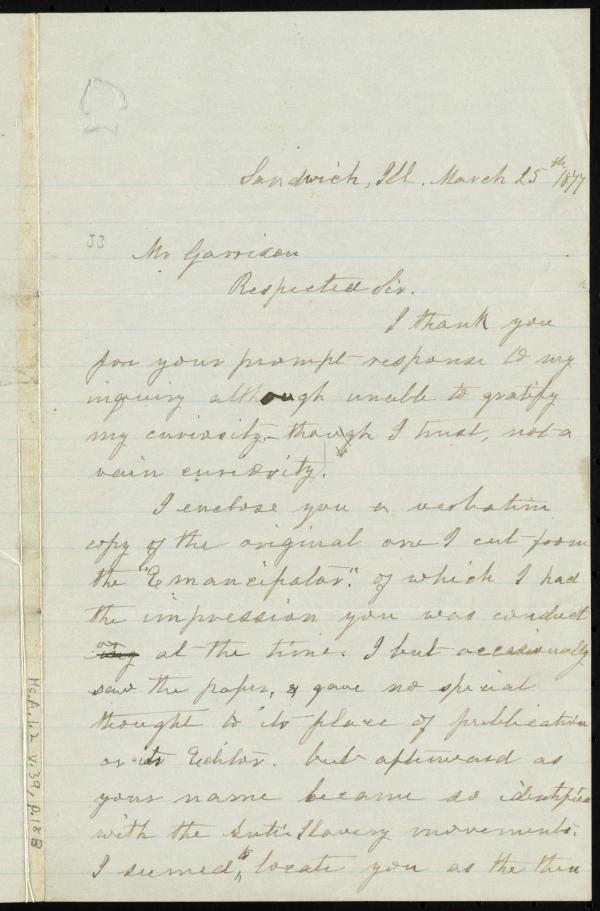 Sandwich, Ill. March 25th 1877
33
Mr Garrison
Respected Sir.
I thank you
for your prompt response to my
inquiry although unable to gratify
my curiosity, though I trust, not a
vain curiosity."
I enclose you a verbatim
copy of the original one I cut from
the "Emancipator". of which I had
the impression you was conduct
ing or at the time. I but occasionally
saw the paper, & gave no special
thought to its place of publication
or its Editor. but afterward as
your name became so identified
with the Anti Slavery movements.
I seemed to locate you as the then
Ms.A.1.2 v.39, p.18B